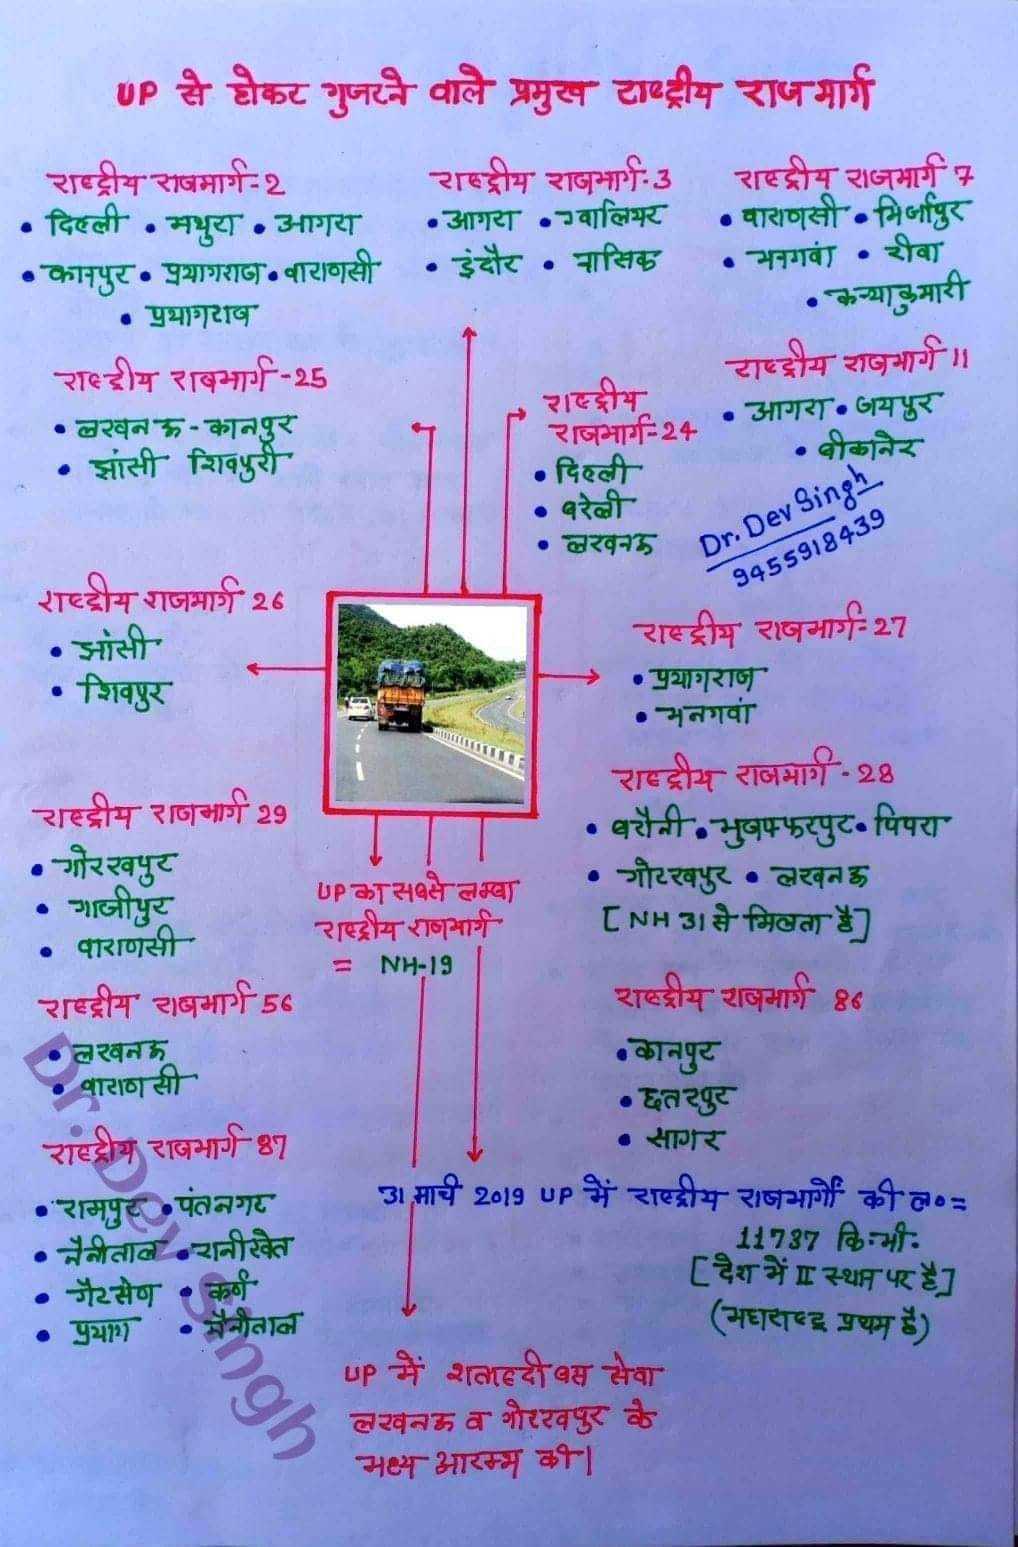 UP से होकर गुजरने वाले प्रमुख राष्ट्रीय राजमार्ग
राष्ट्रीय राजमार्ग-2
• दिल्ली • मथुरा • आगरा
• कानपुर • प्रयागराज • वाराणसी
• प्रयागराज
राष्ट्रीय राजमार्ग-3
• आगरा • ग्वालियर
• इंदौर • नासिक
राष्ट्रीय राजमार्ग 7
• वाराणसी • मिर्जापुर
• मनगवां • रीवा
• कन्याकुमारी
राष्ट्रीय राजमार्ग -25
• लखनऊ - कानपुर
• झांसी शिवपुरी
राष्ट्रीय
राजमार्ग-24
• दिल्ली
• बरेली
• लखनऊ
राष्ट्रीय राजमार्ग 11
• आगरा • जयपुर
• बीकानेर
Dr. Dev Singh
9455918439
राष्ट्रीय राजमार्ग 26
• झांसी
• शिवपुर
राष्ट्रीय राजमार्ग-27
• प्रयागराज
• मनगवां
राष्ट्रीय राजमार्ग - 28
• बरौनी • मुजफ्फरपुर • पिपरा
• गोरखपुर • लखनऊ
[NH 31 से मिलता है]
राष्ट्रीय राजमार्ग 29
• गोरखपुर
• गाजीपुर
• वाराणसी
UP का सबसे लम्बा
राष्ट्रीय राजमार्ग
= NH-19
राष्ट्रीय राजमार्ग 56
• लखनऊ
• वाराणसी
राष्ट्रीय राजमार्ग 86
• कानपुर
• छतरपुर
• सागर
राष्ट्रीय राजमार्ग 87
• रामपुर • पंतनगर
• नैनीताल • रानीखेत
• गैरसेण • कर्ण
• प्रयाग • नैनीताल
31 मार्च 2019 UP में राष्ट्रीय राजमार्गों की ल० =
11737 कि.मी.
[देश में II स्थान पर है]
(महाराष्ट्र प्रथम है)
UP में शताब्दी बस सेवा
लखनऊ व गोरखपुर के
मध्य आरम्भ की।
Dr. Dev Singh